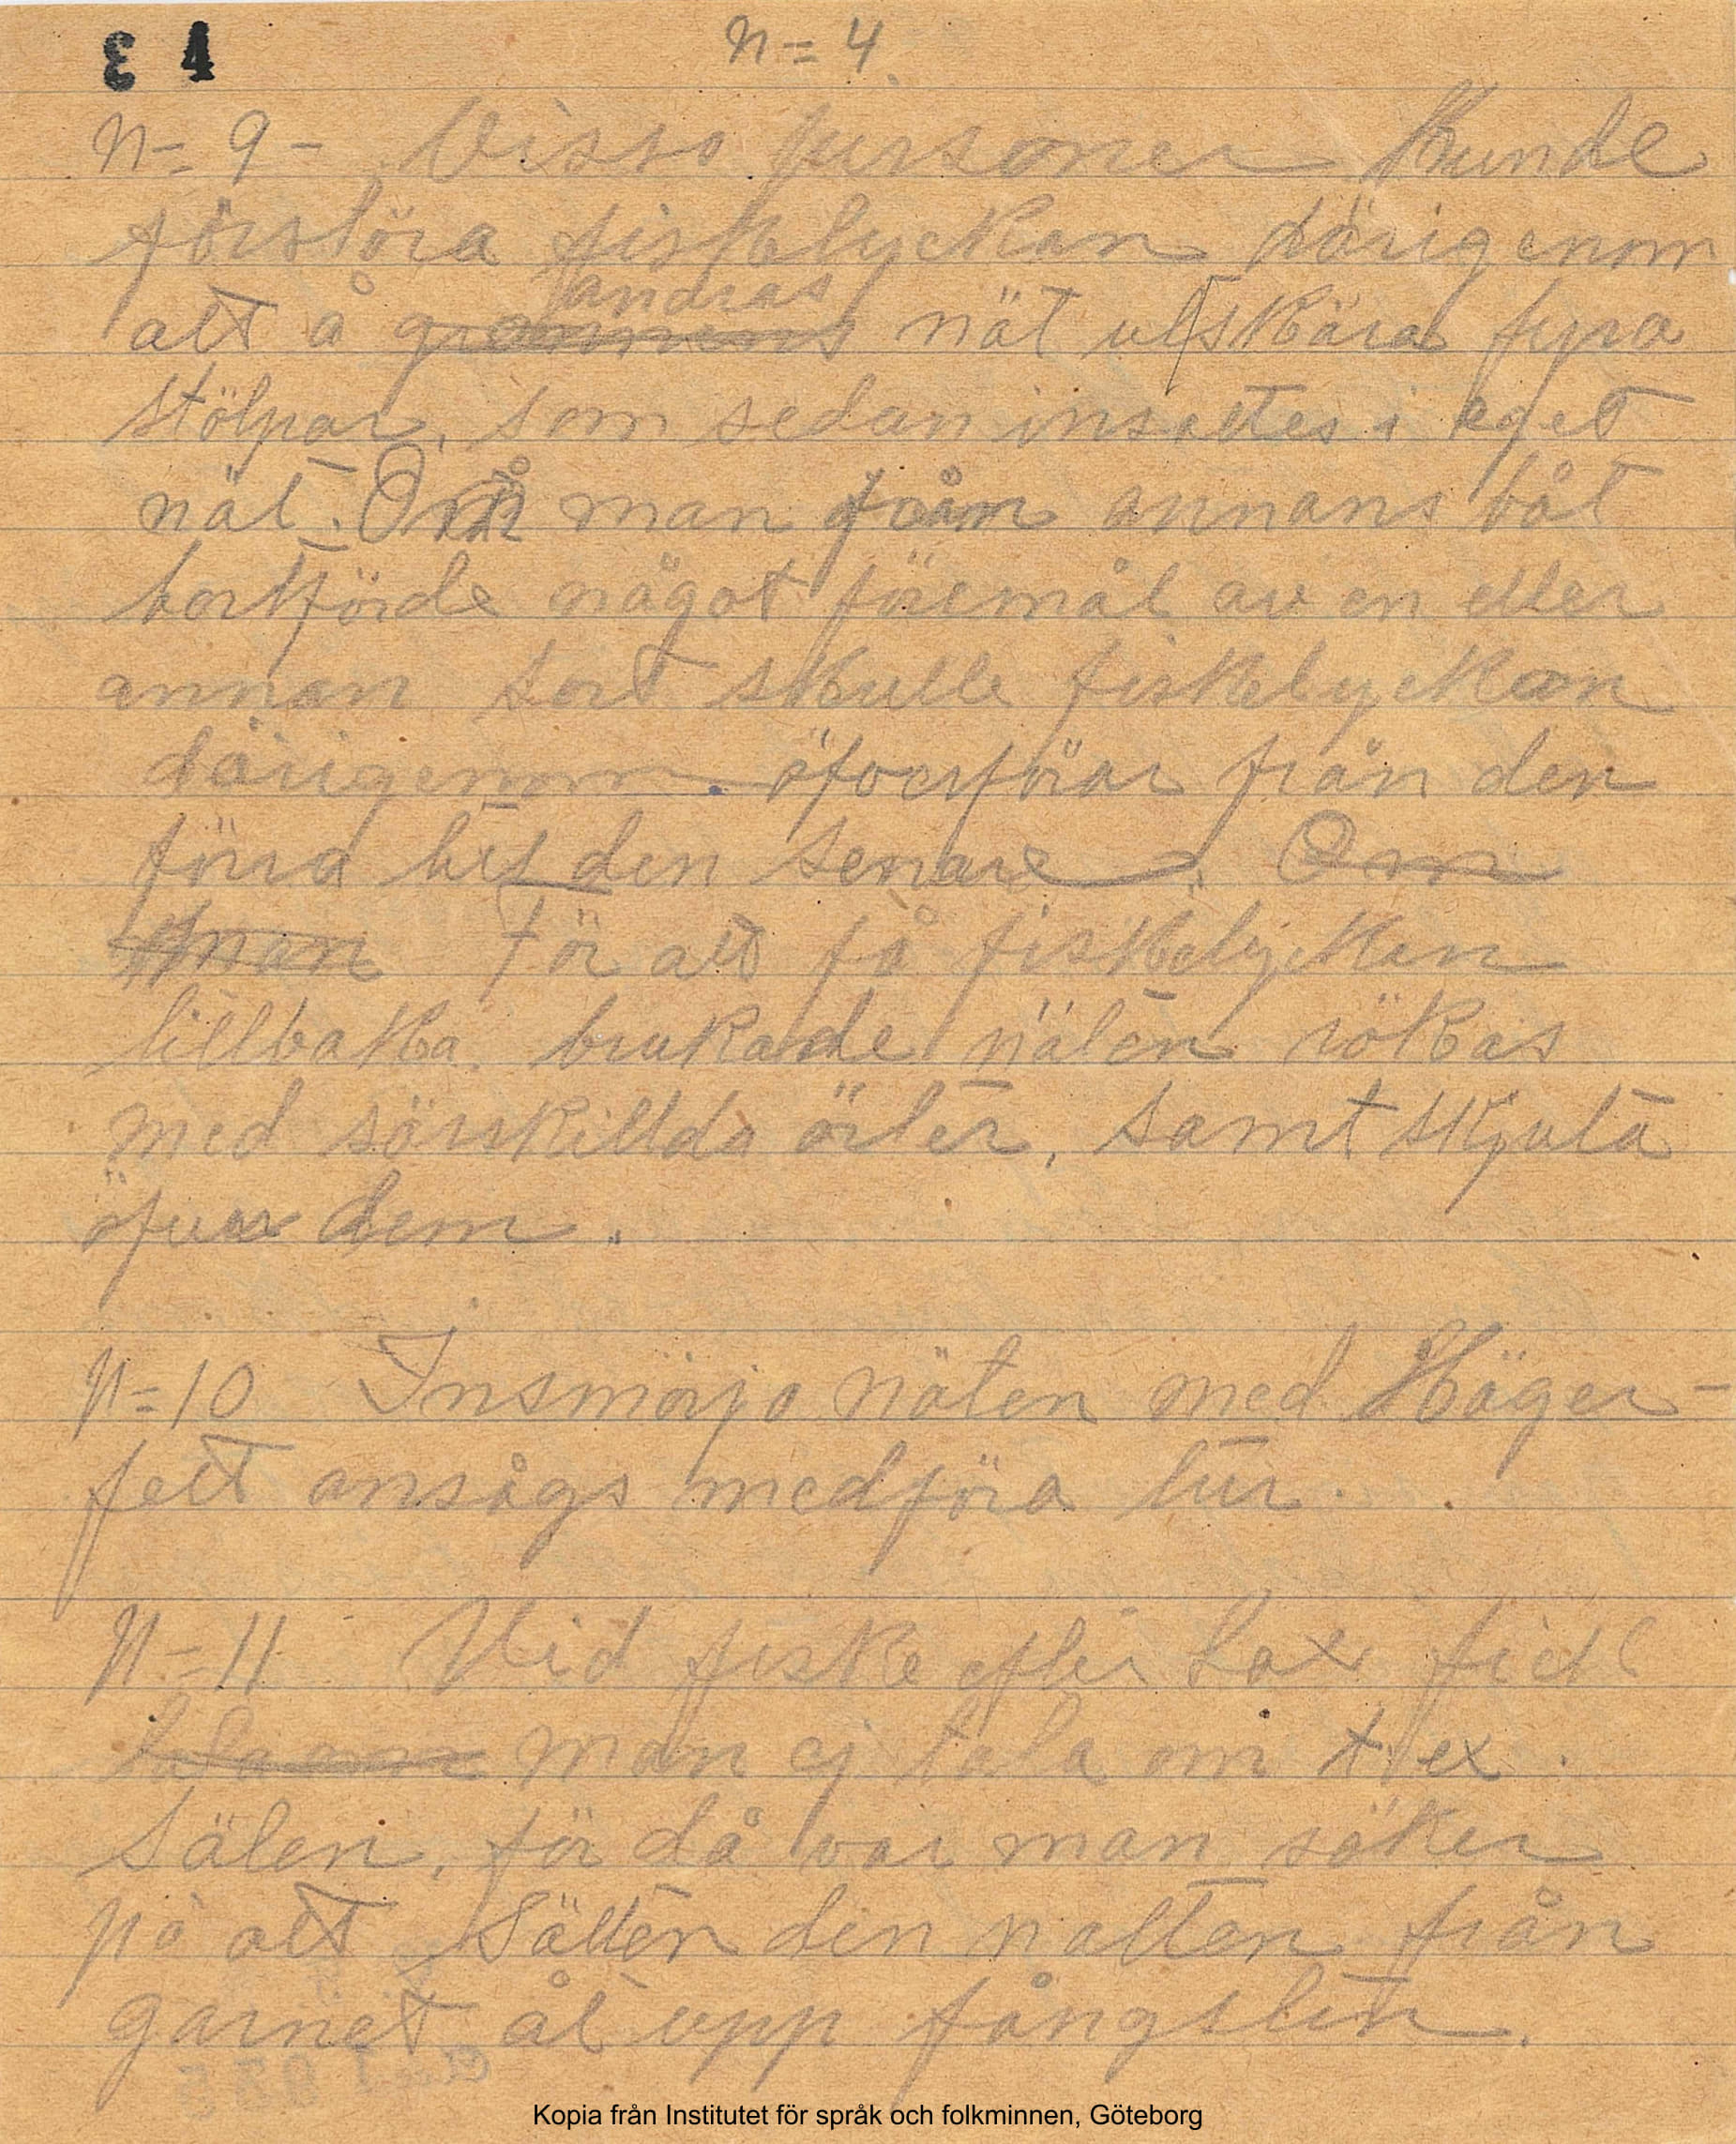 3 4
N= 4.
N= 9 - Vissa personer kunde
förstöra fiskelyckan därigenom
andras
att å grannens nät utskära fyra
stölpar, som sedan insattes i eget
nät. Om man från annans båt
bortförde något föremål av en eller
annan sort skulle fiskelyckan
därigenom öfverföras från den
förra till den senare. Om
man För att få fiskelyckan
tillbaka brukade näten rökas
med särskillda örter, samt skjuta
öfver dem.
N=10 Insmörja näten med Häger-
fett ansågs medföra tur.
N=11 Vid fiske efter Lax fick
tala om man ej tala om t. ex.
Sälen, för då var man säker
på att Sälen den natten från
garnet åt upp fångsten.
Kopia från Institutet för språk och folkminnen, Göteborg